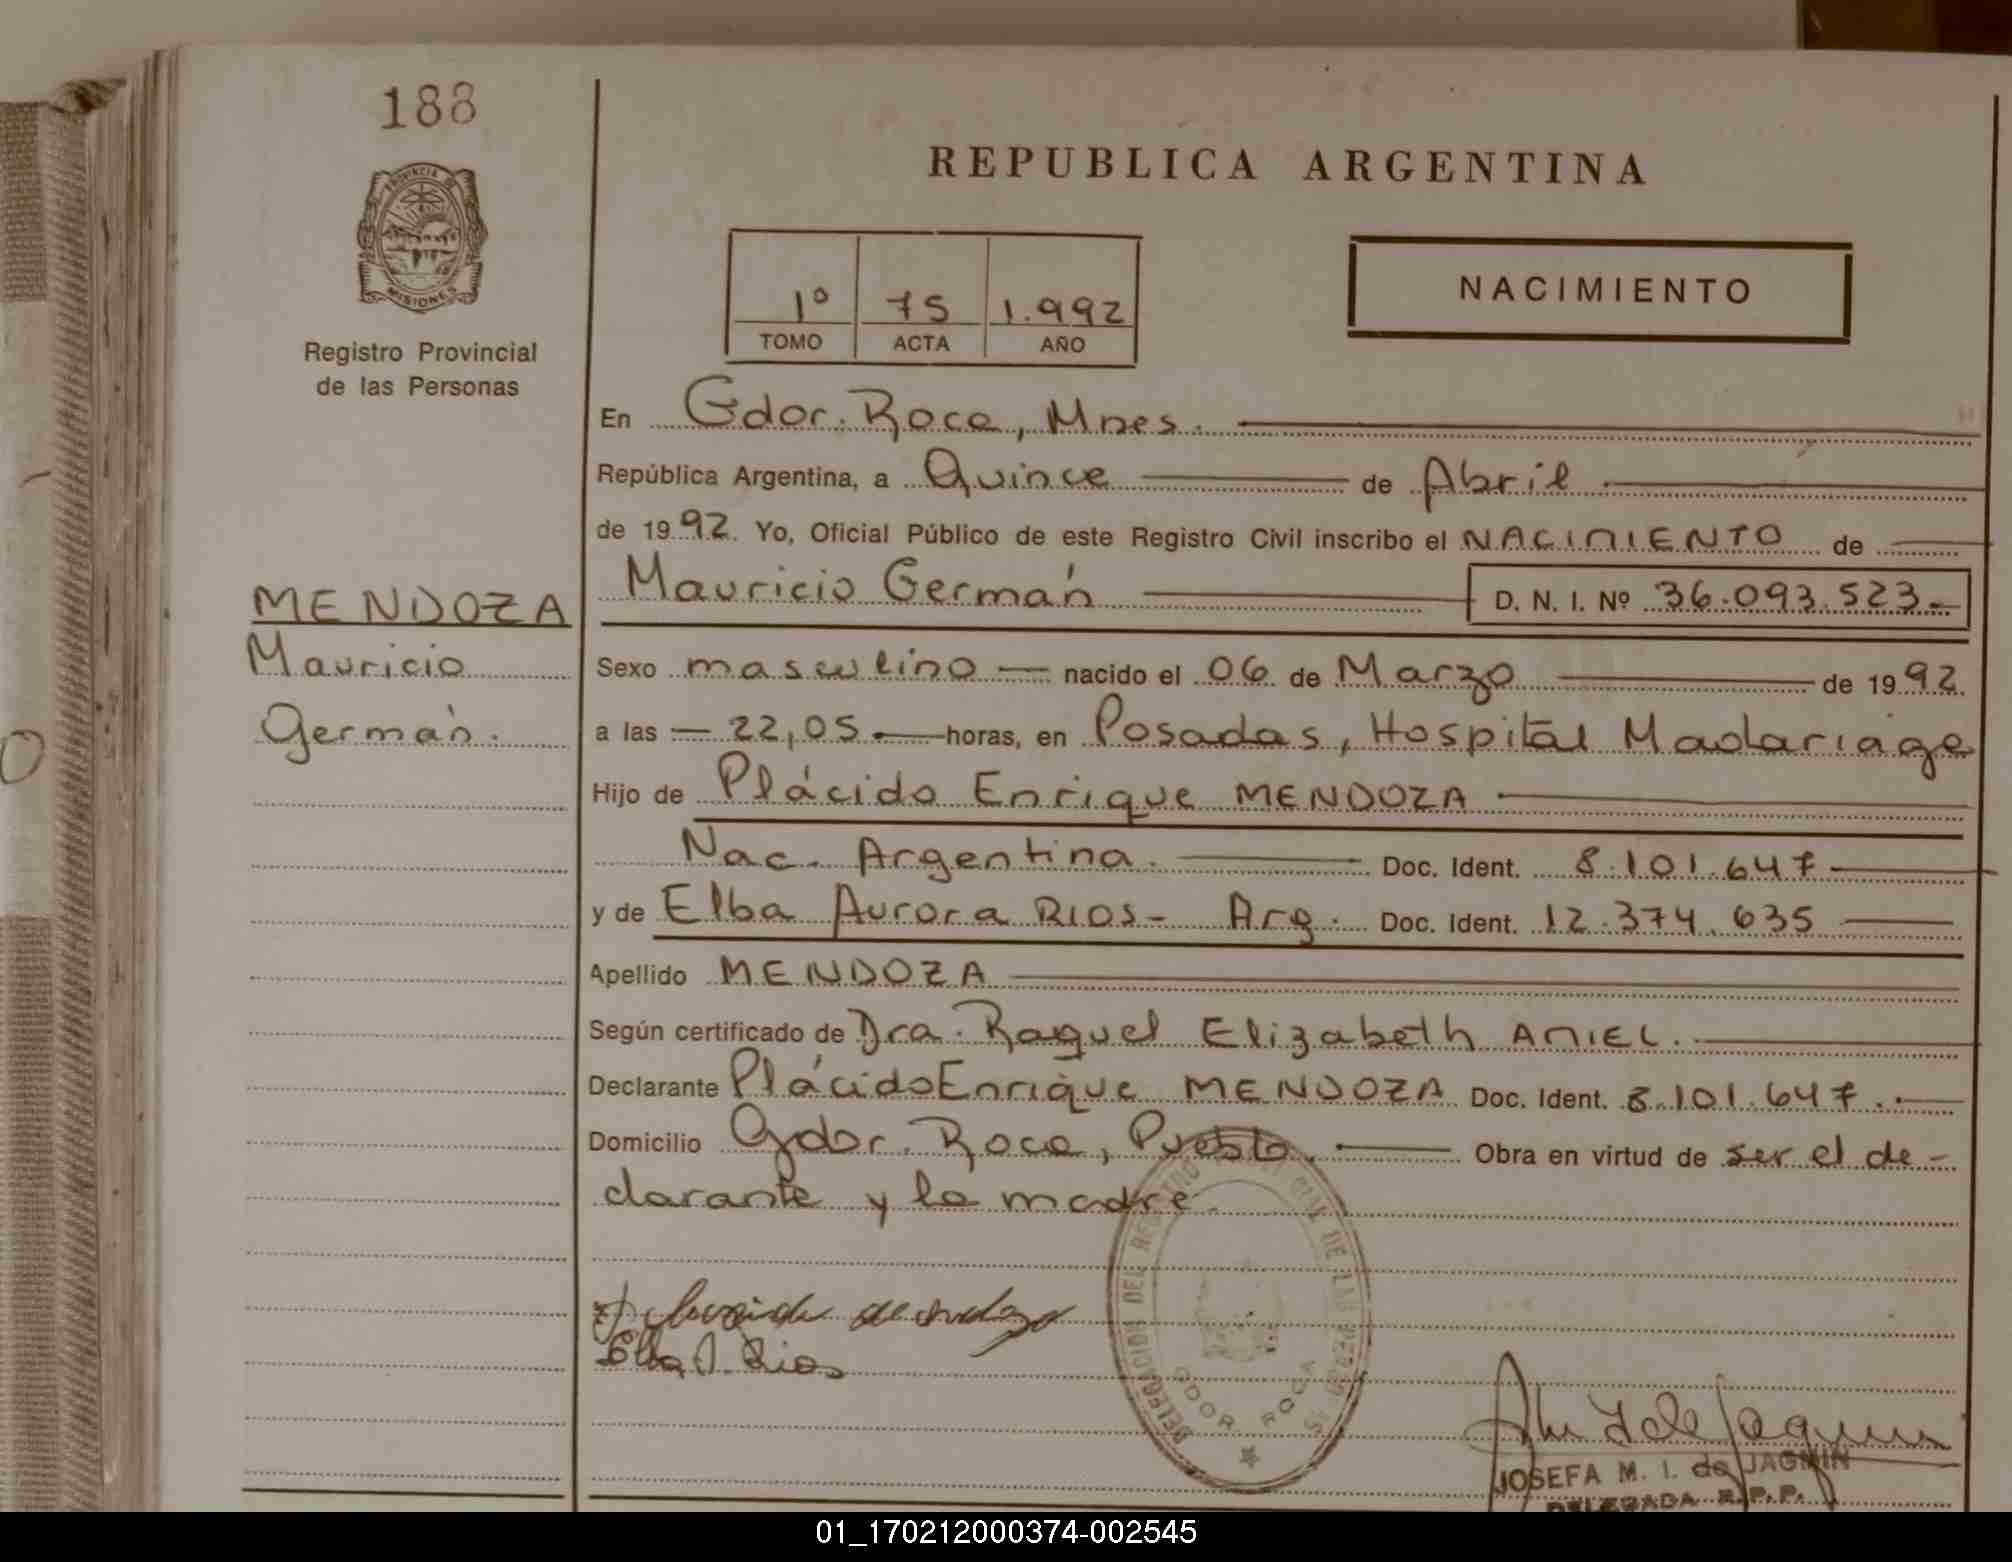 188
PROVINCIA DE
MISIONES
Registro Provincial
de las Personas
MENDOZA
Mauricio
Germán.
REPUBLICA ARGENTINA
1º 75 1.992
TOMO ACTA AÑO
NACIMIENTO
En Gdor. Roca, Mnes.
República Argentina, a Quince de Abril
de 1992. Yo, Oficial Público de este Registro Civil inscribo el NACIMIENTO de
Mauricio Germán D. N. I. Nº 36.093.523-
Sexo masculino — nacido el 06 de Marzo de 1992.
a las — 22,05 — horas, en Posadas, Hospital Madariaga
Hijo de Plácido Enrique MENDOZA
Nac. Argentina. Doc. Ident. 8.101.647
y de Elba Aurora RIOS- Arg. Doc. Ident. 12.374.635
Apellido MENDOZA
Según certificado de Dra. Raquel Elizabeth AMIEL.
Declarante Plácido Enrique MENDOZA Doc. Ident. 8.101.647.
Domicilio Gdor. Roca, Pueblo. Obra en virtud de ser el de-
clarante y la madre.
DELEGACION DEL REGISTRO DE LAS
GDOR ROCA
Elba A. Rios
JOSEFA M. I. de JAGMIN
DELEGADA R.P.P.
01_170212000374-002545